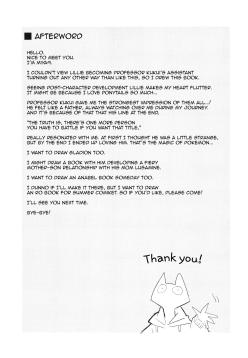 ■ AFTERWORD
HELLO.
NICE TO MEET YOU.
I'M MISAMI.
I COULDN'T VIEW LILLIE BECOMING PROFESSOR KUKUI'S ASSISTANT
TURNING OUT ANY OTHER WAY THAN LIKE THIS, SO I DREW THIS BOOK.
SEEING POST-CHARACTER DEVELOPMENT LILLIE MAKES MY HEART FLUTTER.
IT MIGHT BE BECAUSE I LOVE PONYTAILS SO MUCH...
PROFESSOR KUKUI GAVE ME THE STRONGEST IMPRESSION OF THEM ALL../
HE FELT LIKE A FATHER, ALWAYS WATCHING OVER ME DURING MY JOURNEY.
AND IT'S BECAUSE OF THAT THAT HIS LINE AT THE END.
"THE TRUTH IS, THERE'S ONE MORE PERSON
YOU HAVE TO BATTLE IF YOU WANT THAT TITLE,"
REALLY RESONATED WITH ME. AT FIRST I THOUGHT HE WAS A LITTLE STRANGE,
BUT BY THE END I ENDED UP LOVING HIM. THAT'S THE MAGIC OF POKEMON...
I WANT TO DRAW GLADION TOO.
I MIGHT DRAW A BOOK WITH HIM DEVELOPING A FIERY
MOTHER-SON RELATIONSHIP WITH HIS MOM LUSAMINE.
I WANT TO DRAW AN ANABEL BOOK SOMEDAY TOO.
I DUNNO IF I'LL MAKE IT THERE, BUT I WANT TO DRAW
AN RO BOOK FOR SUMMER COMIKET. SO IF YOU'D LIKE, PLEASE COME!
I'LL SEE YOU NEXT TIME.
BYE-BYE!
Thank you!